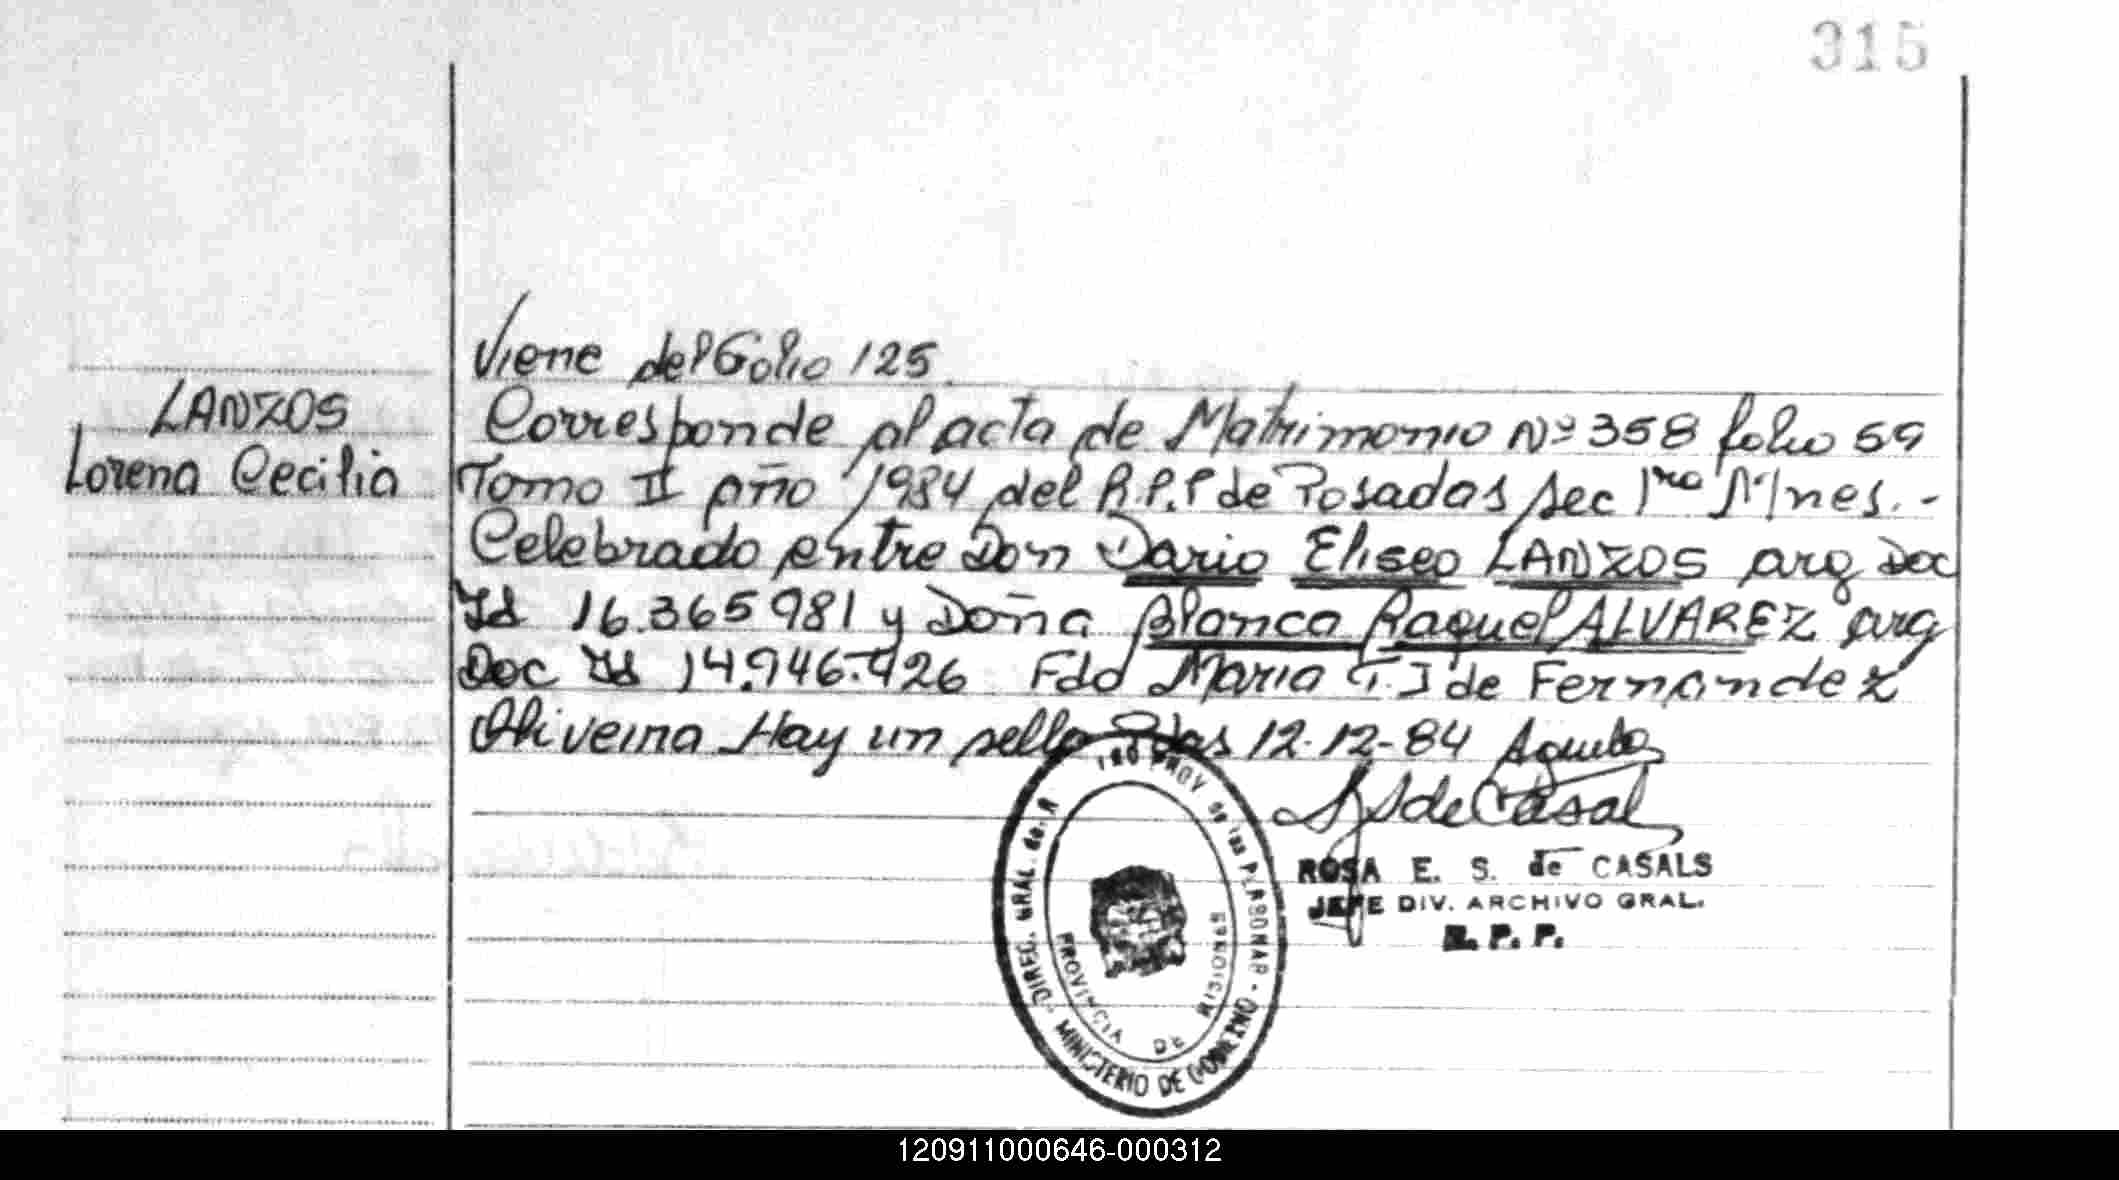 315
Viene del Folio 125
LANZOS
Lorena Cecilia
Corresponde al acta de Matrimonio Nº 358 folio 59
Tomo II año 1984 del R.P.P de Posadas Sec 1ra Mnes. -
Celebrado entre Don Dario Eliseo LANZOS arg Doc
Id 16.365981 y Doña Blanca Raquel ALVAREZ arg
Doc Id 14.946.426 Fdo Maria T. J de Fernandez
Oliveira Hay un sello Pdas 12-12-84
de Casal
ROSA E. S. de CASALS
JEFE DIV. ARCHIVO GRAL.
R. P. P.
DIREC. GRAL. de PROV de las PERSONAS - MINISTERIO DE GOBIERNO -
PROVINCIA DE MISIONES
120911000646-000312